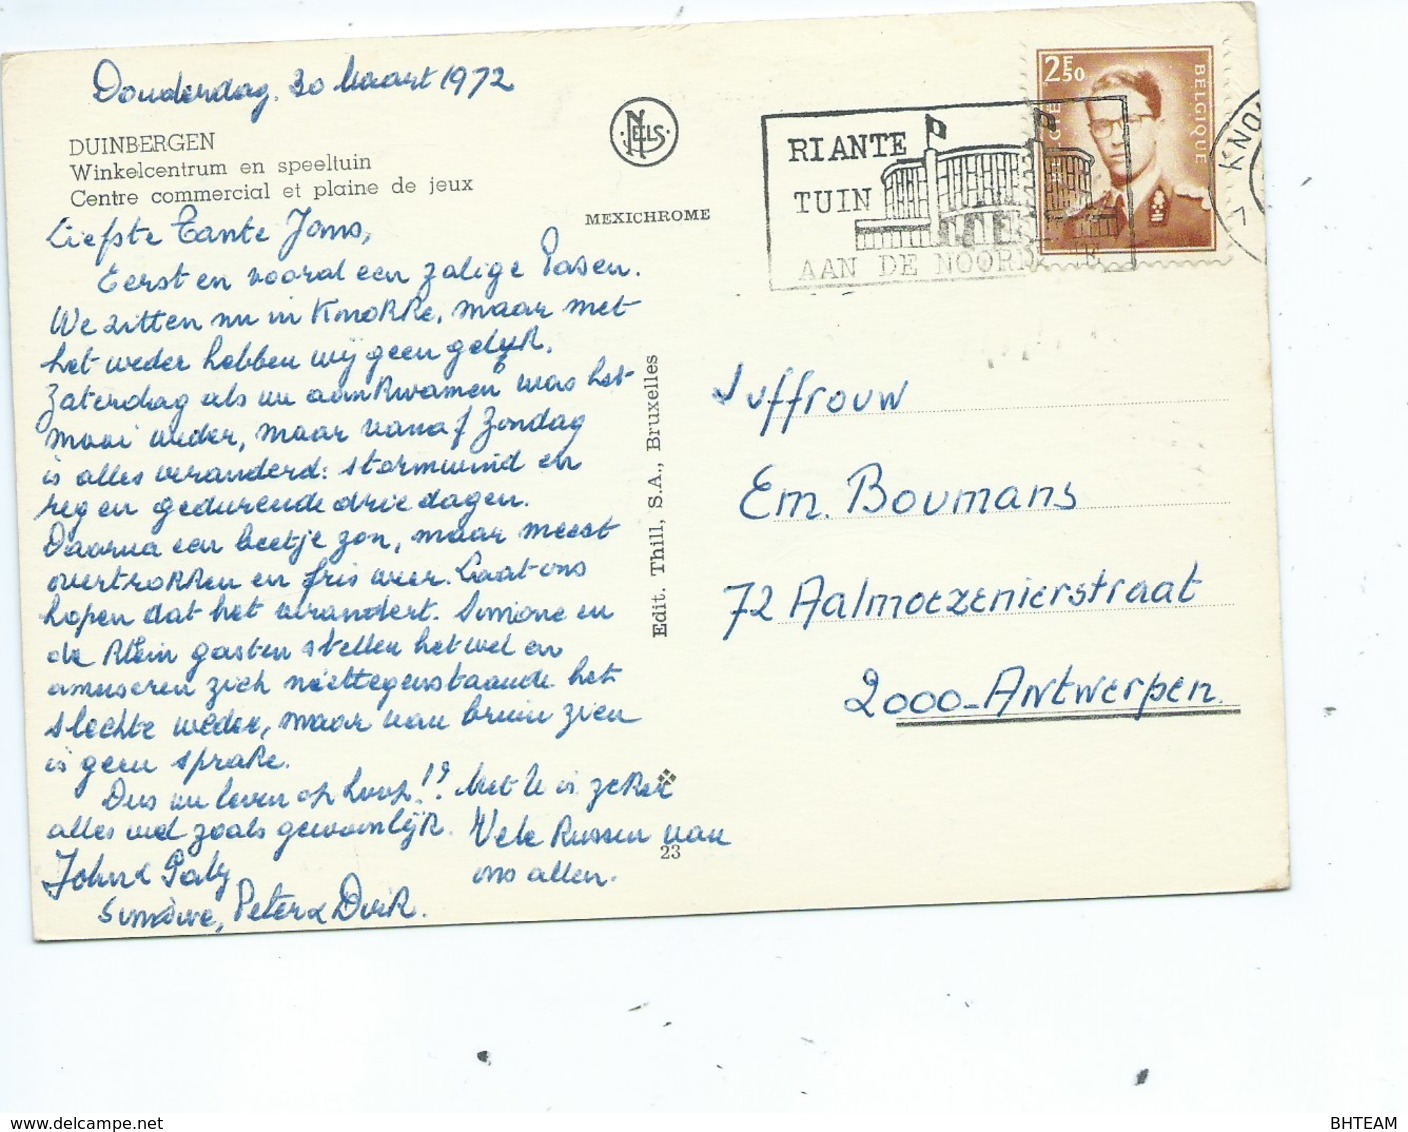 Donderdag, 30 Maart 1972
DUINBERGEN
Winkelcentrum en speeltuin
Centre commercial et plaine de jeux
NELS
MEXICHROME
Liefste Tante Jans,
Eerst en vooral een zalige Pasen.
We zitten nu in Knokke, maar met
het weder hebben wij geen geluk.
Zaterdag als we aankwamen was het
mooi weder, maar vanaf Zondag
is alles veranderd: stormwind en
regen gedurende drie dagen.
Daarna een beetje zon, maar meest
overtrokken en fris weer. Laat ons
hopen dat het verandert. Simone en
de klein gasten stellen het wel en
amuseren zich niettegenstaande het
slechte weder, maar van bruin zien
is geen sprake.
Dus we leven op hoop!? Met U is zeker
alles wel zoals gewoonlijk. Vele Kussen van
ons allen.
John & Gaby
Simone, Peter & Dirk.
Edit. Thill, S.A., Bruxelles
23
RIANTE
TUIN
AAN DE NOORDZEE
2F50
BELGIQUE
KNO
Juffrouw
Em. Boumans
72 Aalmoezenierstraat
2000-Antwerpen.
www.delcampe.net
BHTEAM